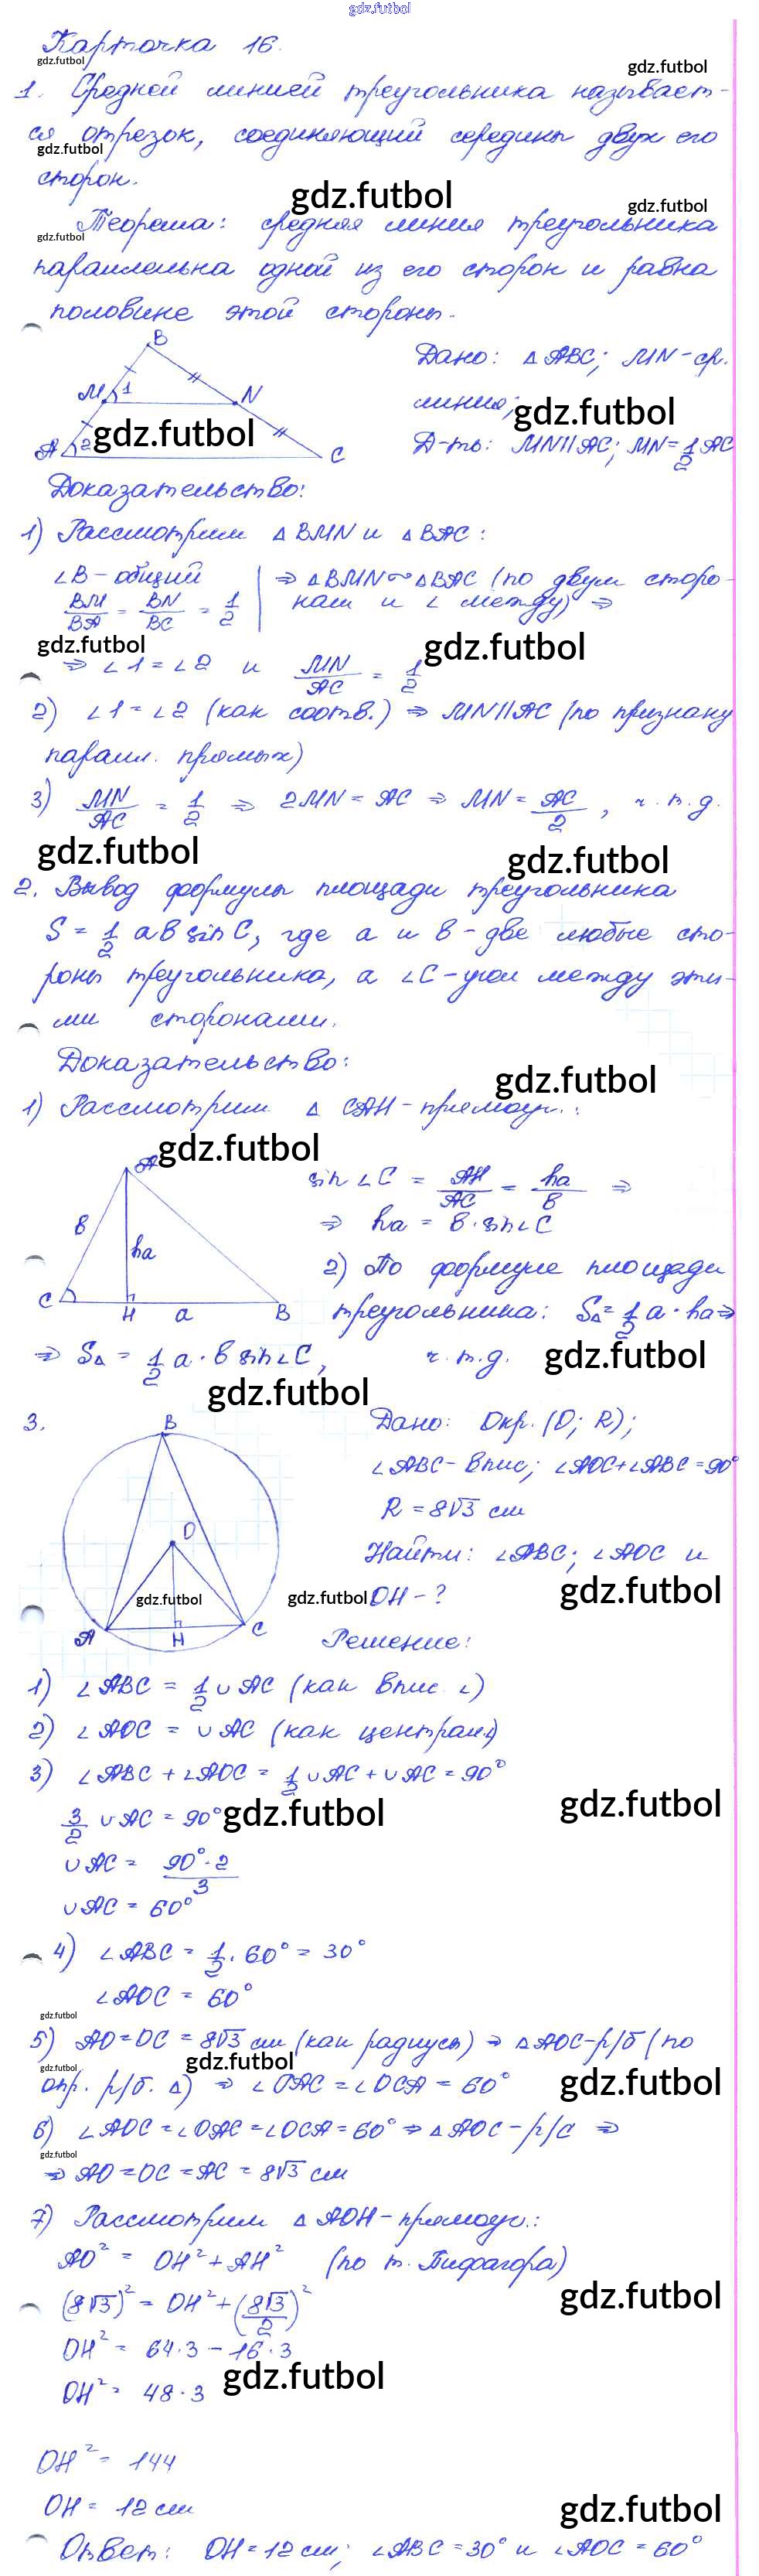 gdz.futbol
Карточка 16.
gdz.futbol
gdz.futbol
1. Средней линией треугольника называет-
ся отрезок, соединяющий середины двух его
gdz.futbol
сторон.
gdz.futbol
gdz.futbol
Теорема: средняя линия треугольника
gdz.futbol
параллельна одной из его сторон и равна
половине этой стороны.
B
M 1 N
A 2 C
gdz.futbol
Дано: △ABC; MN-ср.
линия;
gdz.futbol
Д-ть: MN||AC; MN=1/2 AC
Доказательство:
1) Рассмотрим △BMN и △BAC:
∠B-общий
BM/BA = BN/BC = 1/2
⇒ △BMN∾△BAC (по двум сторо-
нам и ∠ между) ⇒
gdz.futbol
gdz.futbol
⇒ ∠1=∠2 и MN/AC = 1/2
2) ∠1=∠2 (как соотв.) ⇒ MN||AC (по признаку
паралл. прямых)
3) MN/AC = 1/2 ⇒ 2MN = AC ⇒ MN = AC/2, ч.т.д.
gdz.futbol
gdz.futbol
2. Вывод формулы площади треугольника
S = 1/2 ab sin C, где a и b-две любые сто-
роны треугольника, а ∠C-угол между эти-
ми сторонами.
Доказательство:
gdz.futbol
1) Рассмотрим △ CAH-прямоуг.:
gdz.futbol
A
b
ha
C H a B
sin ∠C = AH/AC = ha/b ⇒
⇒ ha = b·sin∠C
2) По формуле площади
треугольника: S△=1/2 a·ha⇒
⇒ S△ = 1/2 a·b sin∠C, ч.т.д.
gdz.futbol
gdz.futbol
3.
B
O
A H C
gdz.futbol
Дано: Окр. (O; R);
∠ABC-впис; ∠AOC+∠ABC=90°
R = 8√3 см
Найти: ∠ABC; ∠AOC и
gdz.futbol
gdz.futbol
OH-?
Решение:
1) ∠ABC = 1/2 ∪AC (как впис. ∠)
2) ∠AOC = ∪AC (как централ.)
3) ∠ABC+∠AOC = 1/2 ∪AC+∪AC=90°
3/2 ∪AC = 90°
gdz.futbol
gdz.futbol
∪AC = 90°·2/3
∪AC = 60°
4) ∠ABC = 1/2 · 60° = 30°
∠AOC = 60°
gdz.futbol
5) AO=OC = 8√3 см (как радиусы) ⇒ △AOC-р/б (по
gdz.futbol
gdz.futbol
gdz.futbol
опр. р/б. △) ⇒ ∠OAC=∠OCA = 60°
6) ∠AOC=∠OAC=∠OCA=60° ⇒ △AOC-р/с ⇒
gdz.futbol
⇒ AO=OC=AC = 8√3 см
7) Рассмотрим △AOH-прямоуг.:
AO² = OH²+AH² (по т. Пифагора)
gdz.futbol
(8√3)² = OH²+(8√3/2)²
OH² = 64·3-16·3
gdz.futbol
OH² = 48·3
OH² = 144
OH = 12 см
gdz.futbol
Ответ: OH=12 см; ∠ABC=30° и ∠AOC = 60°